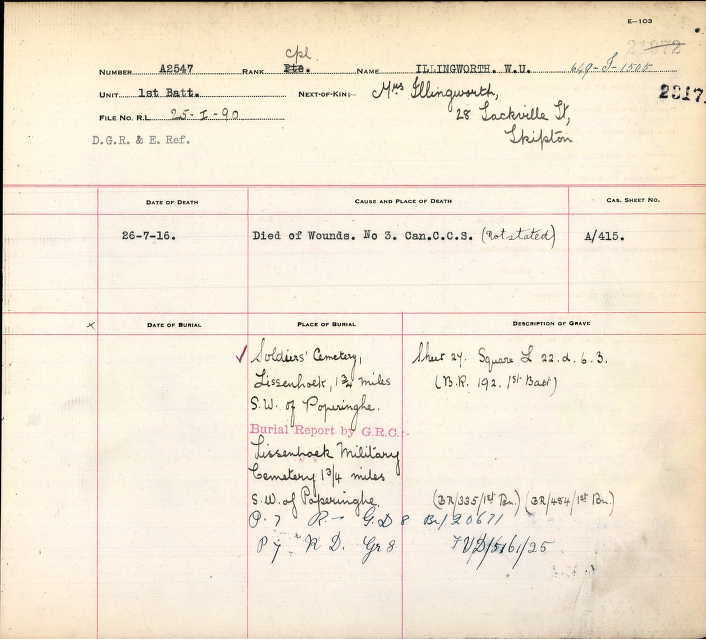 E—103
NUMBER A2547 RANK Pte. Cpl. NAME ILLINGWORTH. W.U. 649-I-1505
UNIT 1st Batt. NEXT-OF-KIN:— Mrs Illingworth,
28 Sackville St,
Skipton
FILE NO. R.L. 25-I-90
D.G.R. & E. Ref.
DATE OF DEATH CAUSE AND PLACE OF DEATH CAS. SHEET NO.
26-7-16. Died of Wounds. No 3. Can.C.C.S. (not stated) A/415.
x DATE OF BURIAL PLACE OF BURIAL DESCRIPTION OF GRAVE
✓ Soldiers' Cemetery, Sheet 27. Square L 22.d.6.3.
Lissenhoek, 1¾ miles (B.R. 192. 1st Batt)
S.W. of Poperinghe.
Burial Report by G.R.C:-
Lissenhoek Military
Cemetery 1 3/4 miles
S.W. of Poperinghe. (BR/335/1st Bn.) (BR/484/1st Bn.)
P. 7 R.— G.D 8 Br/20671
P 7 R D. Gr 8